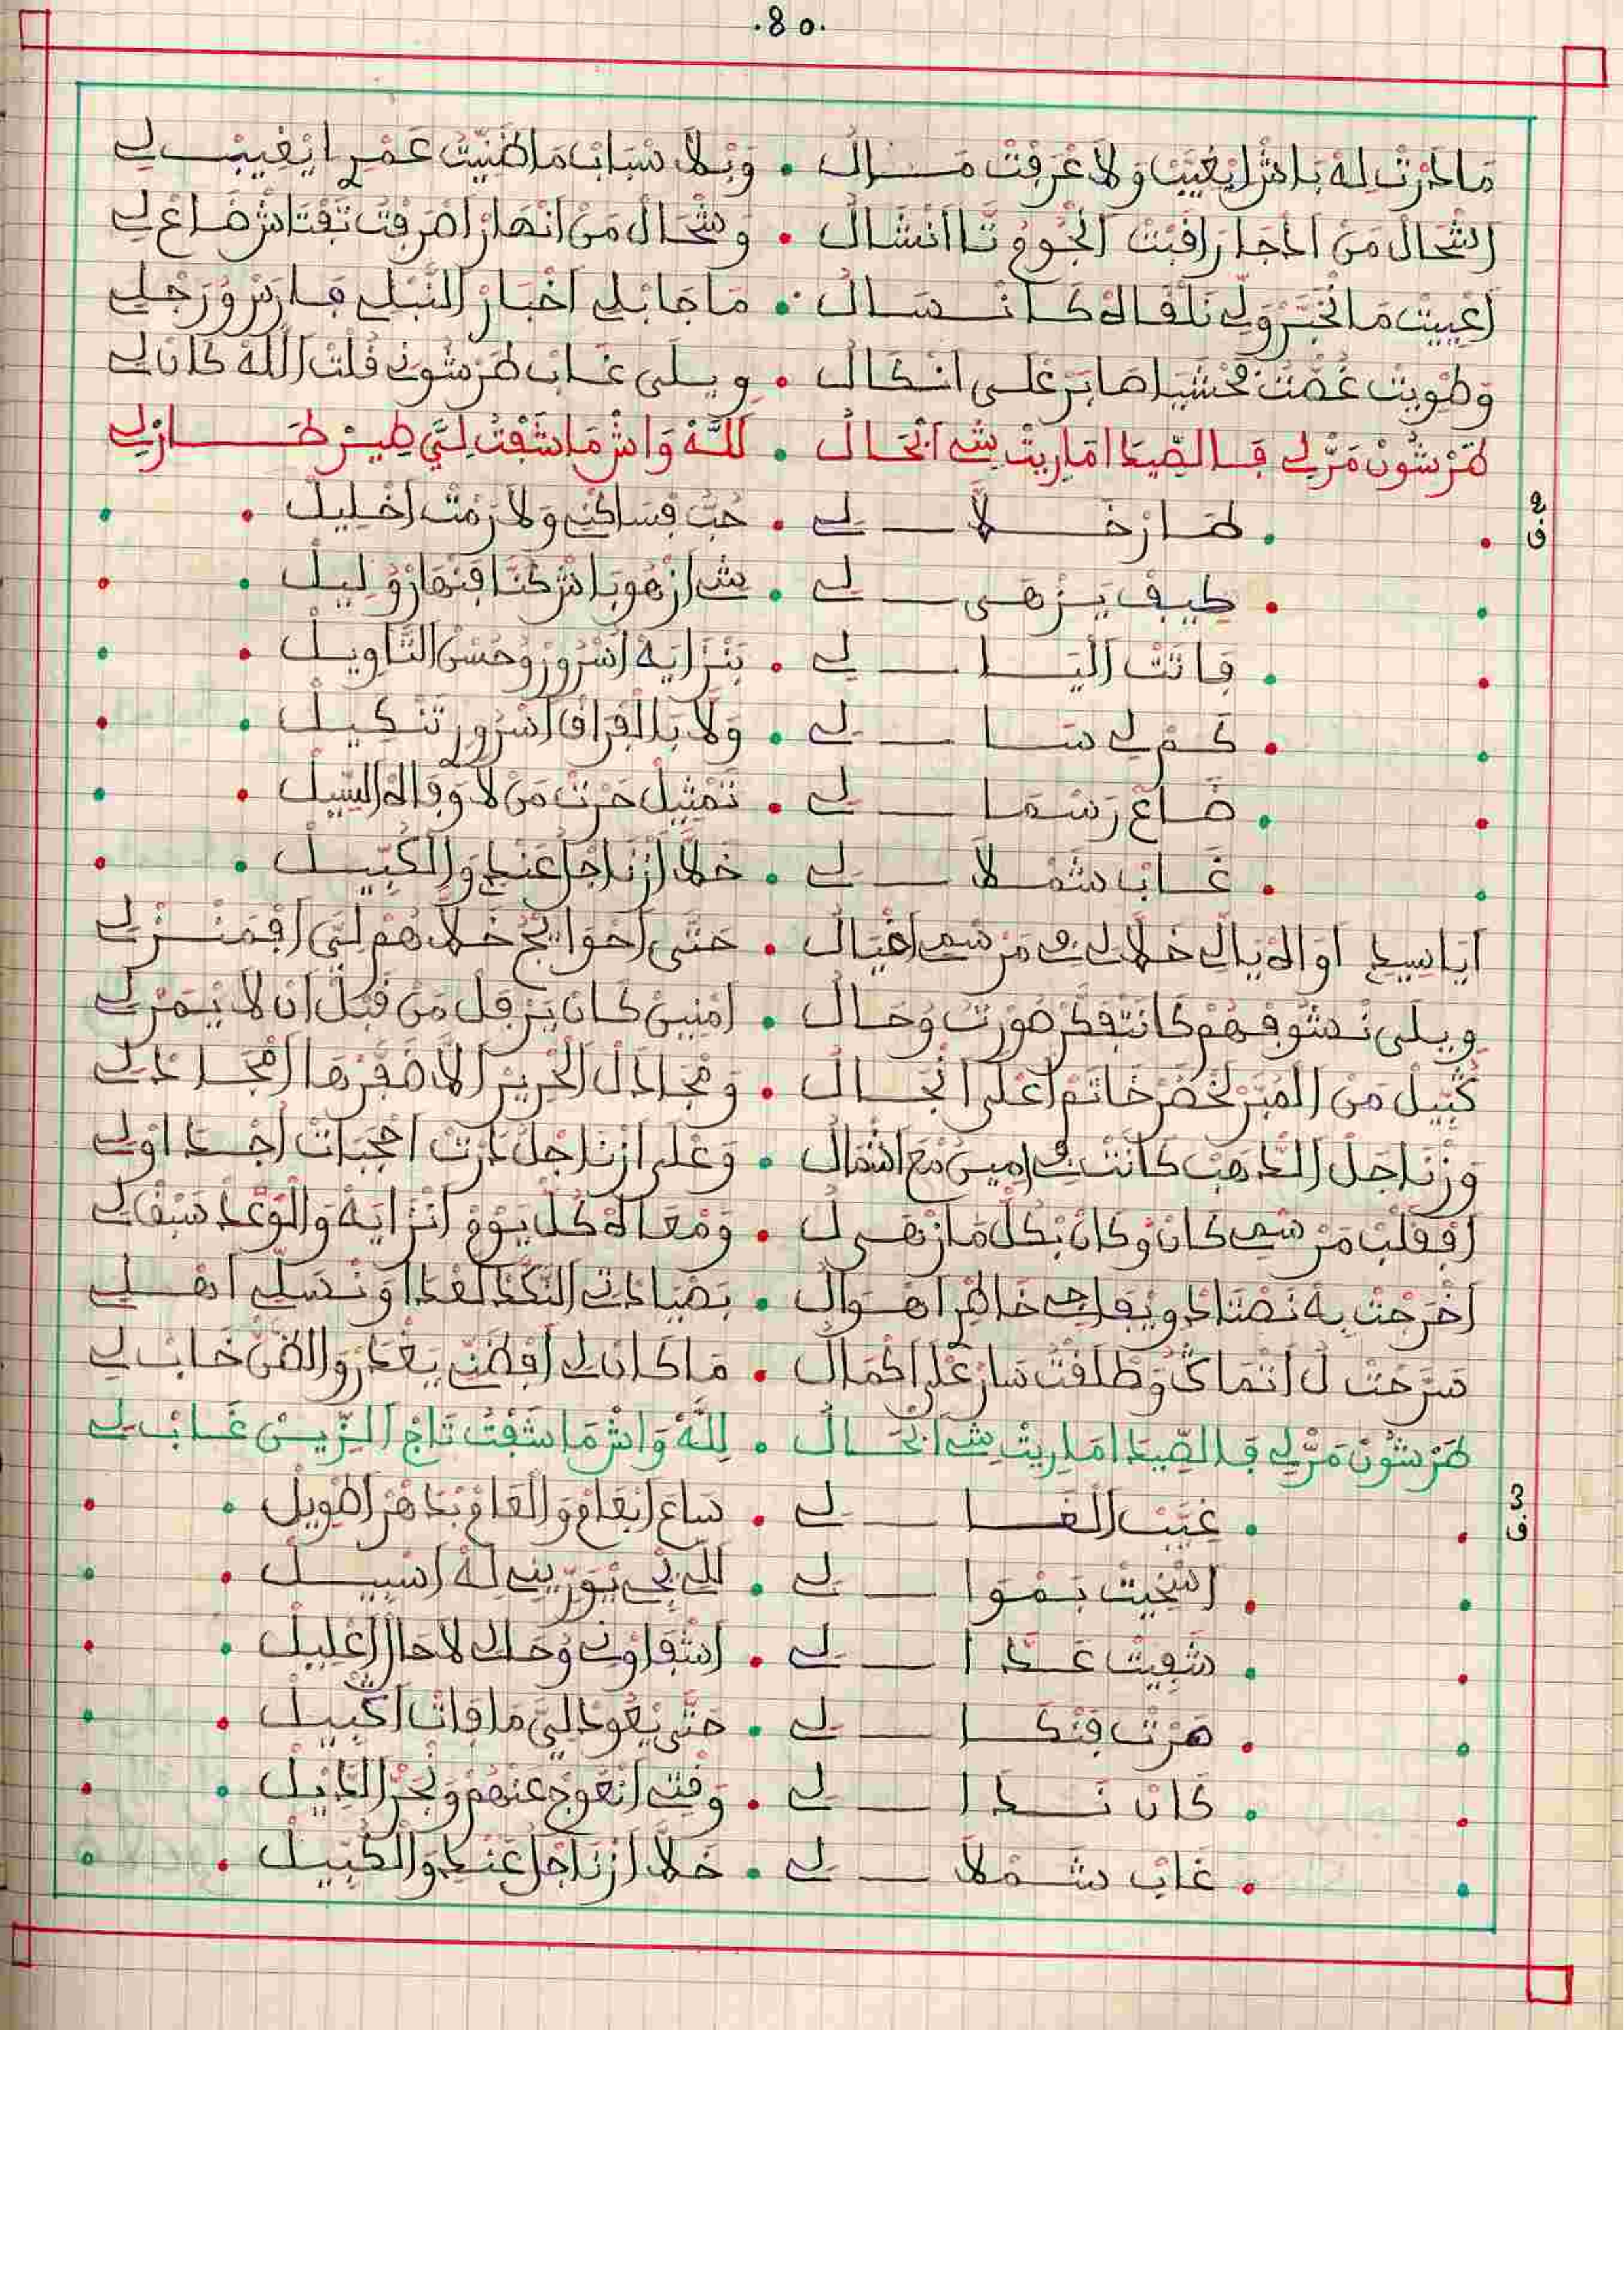 .80.
مَا دَرْتْ لِهْ بَاشْ ايْغَيَّبْ وَلَا عْرَفْتْ مَــالُ • وَبْلَا سْبَابْ مَا ظَنِّيتْ عَمْرُ ايْغِيبْ لِي
اشْحَالْ مَنْ ادْجَا رَاقَبْتْ الْجُّومْ تَا انْشَالُ • وَشْحَالْ مَنْ انْهَارْ اصْرَفْتْ تَفْتَاشْ ضَاعْ لِي
اعْيِيتْ مَا انْخَبَّرْ وَلِّي نَلْقَاهْ كَا نْـسَالُ • مَا جَابْ لِي اخْبَارْ النَّبْلِي فَارَسْ وُرَجْلِي
وَطْوِيتْ غُصّْتْ فْحْشَيَا صَابَرْ عْلَى انْكَالُ • ويلَى غَابْ طَرْشُونِي قُلْتْ اللَّهْ كَانْ لِي
طَرْشُونْ مَرّْلِي فَالصِّيدْ امَارِيتْ شِي ابْحَالُ • لِلَّهْ وَاشْ مَا شَفْتُ لِيَّ طِيرْ طَـــارْ لِي
2 ف
• طَــارْ خَــلَّا ـــ لِي • حُبُّ فْسَاكْنِي وَلَا رَمْتْ اخْلِيلْ
• طِيفْ يَـزْهَى ـــ لِي • شِي ازْهُو بَاشْ كُنَّا فَنْهَارْ وُلِيلْ
• فَاتَتْ الْيَــا ـــ لِي • بَنْزَايَهْ اسْرُورْ وُحُسْنْ التَّاوِيلْ
• كَـمْ لِي سَــا ـــ لِي • وَلَا بَالْفْرَاقْ اسْرُورْ تَنْـكِيلْ
• ضَـاعْ رَسْمَـا ـــ لِي • تَمْثِيلْ حَرْتْ مَنْ لَا وَفَاهْ السِّيلْ
• غَــابْ شَمْـلَا ـــ لِي • خَلَّا ازْنَاجْلُ عَنْدِي وَالْكُبِّيلْ
ايَا سِيدِي اوَاهْ يَالِّي خَلَّا لِي فِي مَرْسْمِي اخْيَالُ • حَتَّى احْوَايْجُ خَلَّاهُمْ لِيَّ افْمَنْـزْلِي
ويلَى نْشُوفْهُمْ كَانَتْفَكَّرْ صُورْتُ وُحَـالُ • امْنِينْ كَانْ يَرْفَلْ مَنْ قْبَلْ انْ لَا يْـمَرّْ لِي
كُبِّيلْ مَنْ الْمُبَرْ لَخْضَرْ خَاتْمُ اعْلَى انْجَـالُ • وَمْجَادَلْ الْحْرِيرْ الَّا ضْفَرْهَا امْجَادْلِي
وَزْنَاجَلْ الدَّهَبْ كَانَتْ فِي امِيسْ مْعَ اشْمَالُ • وَعْلَى ازْنَاجْلُ دَرْتْ احْجَبَاتْ اجْـدَاوْلِي
افْقَلْبْ مَرْسْمِي كَانْ وُكَانْ بْكُلّْ مَا زْهَى لُ • وَمْعَاهْ كُلّْ يَوْمْ انْزَايَهْ وَالْوَعْدْ سَبْقْ لِي
اخْرَجْتْ بِهْ نَصْتَادْ ويفَاجِي خَاطْرِ اهْـوَالُ • بَصْيَادْتِي النَّكَّدْ لَعْدَا وَنْـسَلِّي اهْـلِي
سَرَّحْتْ لُ انْمَاكُ وَطْلَقْتُ سَارْ عْلَى اكْمَالُ • مَا كَانْ لِي افْظَنِّي يَغْدَرْ وَالظَّنّْ خَابْ لِي
طَرْشُونْ مَرّْلِي فَالصِّيدْ امَارِيتْ شِي ابْحَـالُ • لِلَّهْ وَاشْ مَا شَفْتُ تَاجْ الزِّينْ غَـابْ لِي
3 ف
• غَيَّبْ الْغَــا ـــ لِي • سَاعَ ابْعَامْ وَالْعَامْ بْدَهْرْ اطْوِيلْ
• اسْخِيتْ بَـمْوَا ـــ لِي • لَلِّي يْجِي يْوَرِّينِي لَهْ اسْبِيـلْ
• شَفِيتْ عَــدَّا ـــ لِي • اشْفَاوْنِي وُحَالِي لَا حَالْ اعْلِيلْ
• هَرْتْ فَتْكَــا ـــ لِي • حَتَّى يْعُودْ لِيَّ مَا فَاتْ اكْبِيلْ
• كَانْ نَــدَّا ـــ لِي • وَقْتِي انْعَوَّجْ عَنْهُمْ وَنْجَرّْ الدِّيْلْ
• غَابْ شَــمْلَا ـــ لِي • خَلَّا ازْنَاجْلُ عَنْدِي وَالْكُبِّيلْ